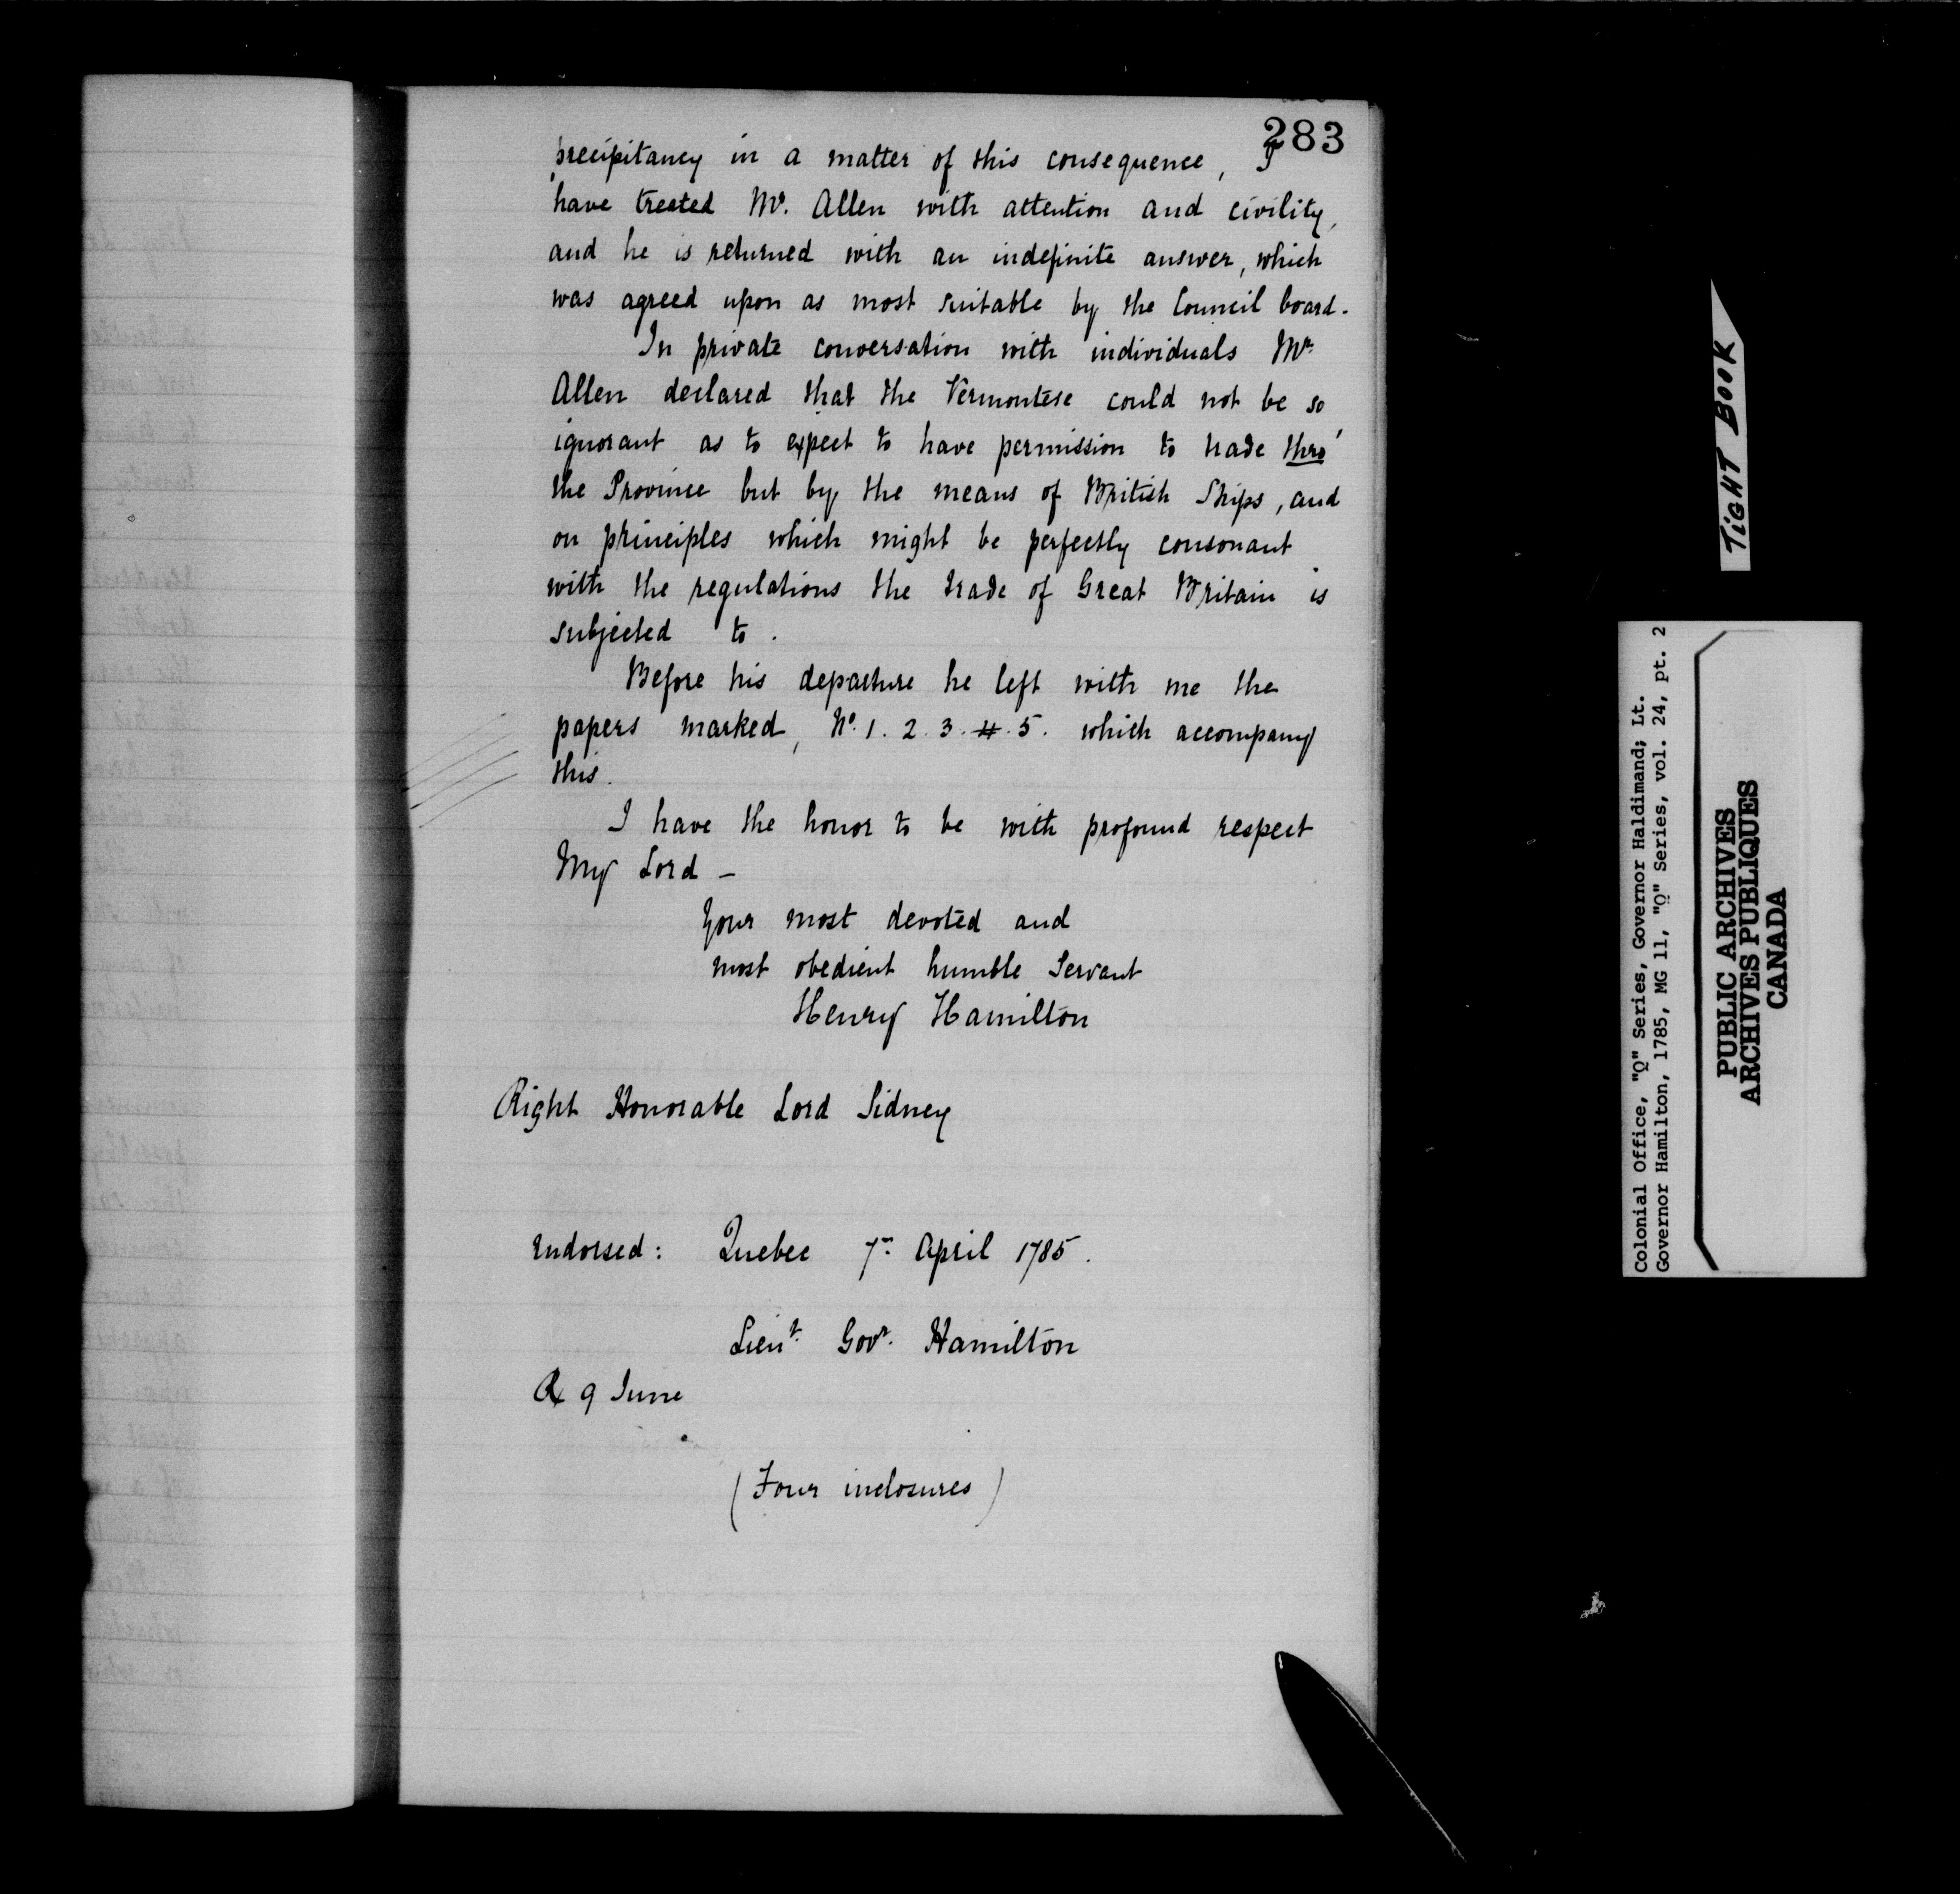 283
precipitancy in a matter of this consequence, I
have treated Mr. Allen with attention and civility,
and he is returned with an indefinite answer, which
was agreed upon as most suitable by the Council board.
In private conversation with individuals Mr.
Allen declared that the Vermontese could not be so
ignorant as to expect to have permission to trade thro'
the Province but by the means of British Ships, and
on principles which might be perfectly consonant
with the regulations the trade of Great Britain is
subjected to.
Before his departure he left with me the
papers marked, No. 1. 2. 3. 4. 5. which accompany
this.
I have the honor to be with profound respect
My Lord —
Your most devoted and
most obedient humble Servant
Henry Hamilton
Right Honorable Lord Sidney
Endorsed: Quebec 7th April 1785.
Lieut. Govr. Hamilton
R 9 June
(Four inclosures)
TIGHT BOOK
Colonial Office, "Q" Series, Governor Haldimand; Lt.
Governor Hamilton, 1785, MG 11, "Q" Series, vol. 24, pt. 2
PUBLIC ARCHIVES
ARCHIVES PUBLIQUES
CANADA